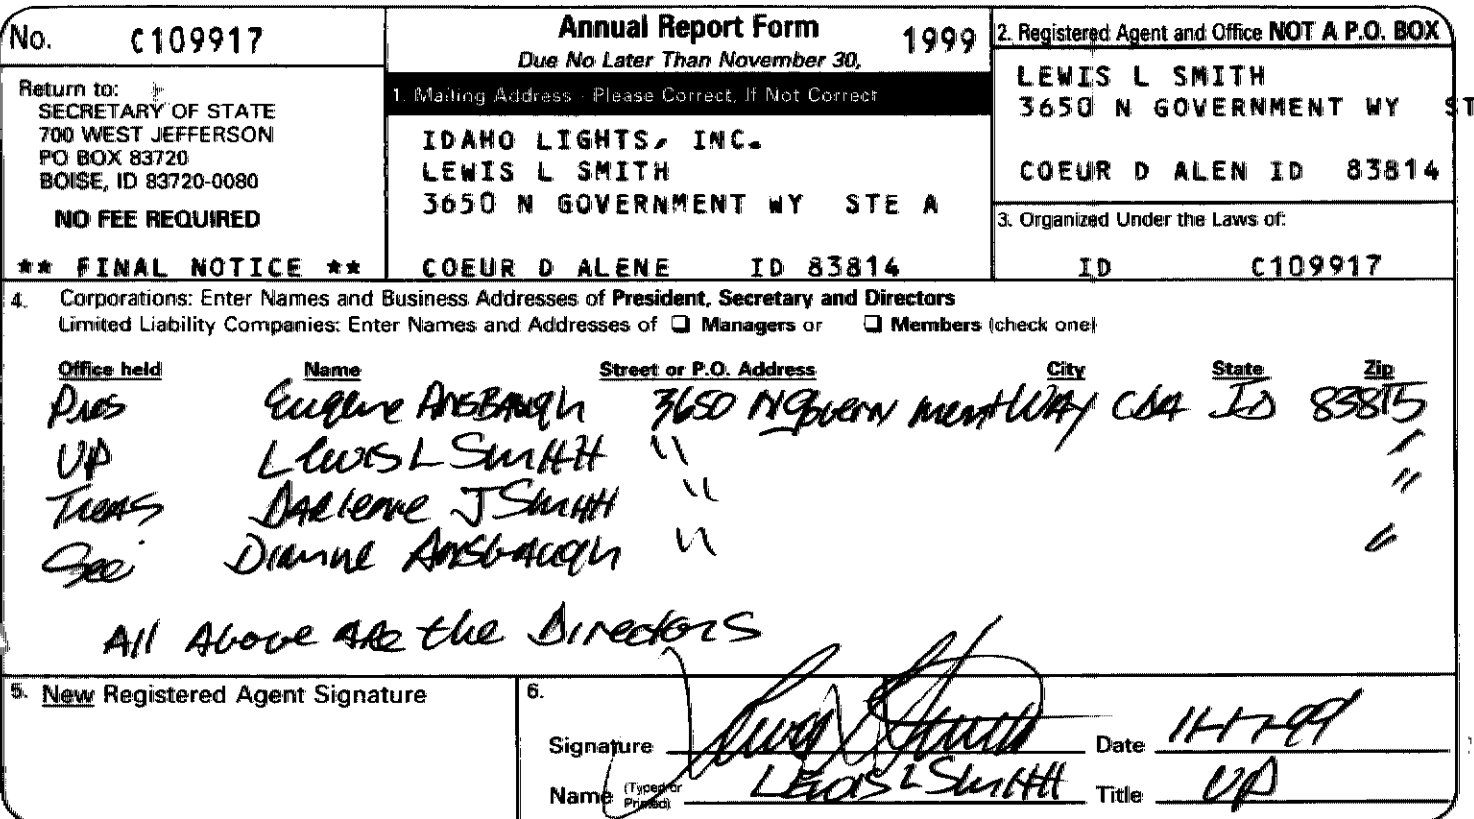 No. C109917
Return to:
SECRETARY OF STATE
700 WEST JEFFERSON
PO BOX 83720
BOISE, ID 83720-0080
NO FEE REQUIRED
** FINAL NOTICE **
Annual Report Form 1999
Due No Later Than November 30,
1. Mailing Address - Please Correct, If Not Correct
IDAHO LIGHTS, INC.
LEWIS L SMITH
3650 N GOVERNMENT WY STE A
COEUR D ALENE ID 83814
2. Registered Agent and Office NOT A P.O. BOX
LEWIS L SMITH
3650 N GOVERNMENT WY ST
COEUR D ALEN ID 83814
3. Organized Under the Laws of:
ID C109917
4. Corporations: Enter Names and Business Addresses of President, Secretary and Directors
Limited Liability Companies: Enter Names and Addresses of ❑ Managers or ❑ Members (check one)
Office held Name Street or P.O. Address City State Zip
Pres Eugene Ansbaugh 3650 N Government Way CDA ID 83815
VP Lewis L Smith " "
Treas Darlene J Smith " "
Sec Dianne Ansbaugh " "
All Above are the Directors
5. New Registered Agent Signature
6.
Signature Lewis L Smith Date
Name (Typed or Printed) Lewis L Smith Title VP